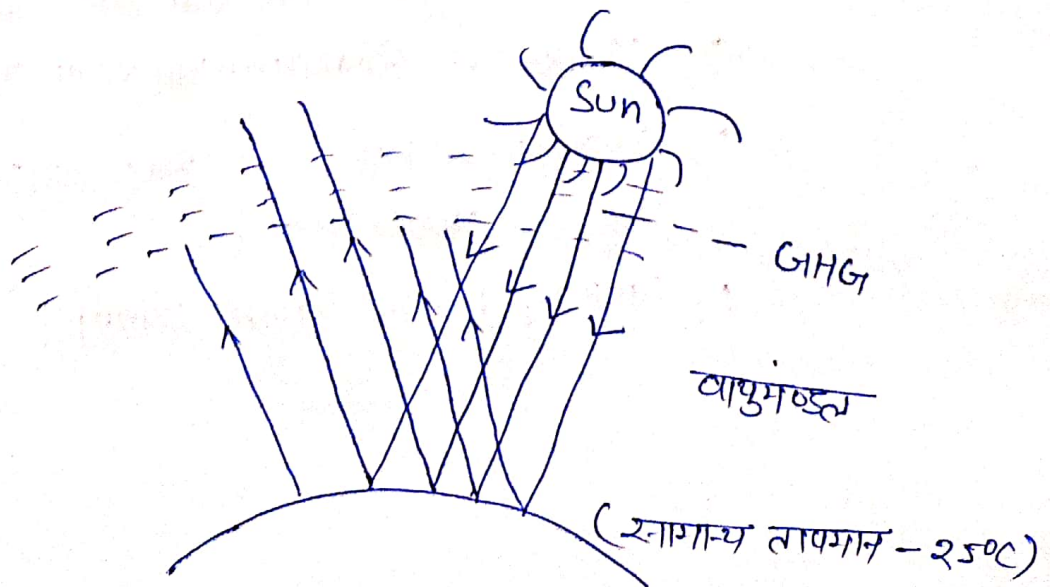 Sun
GHG
वायुमण्डल
(सामान्य तापमान - 25°C)